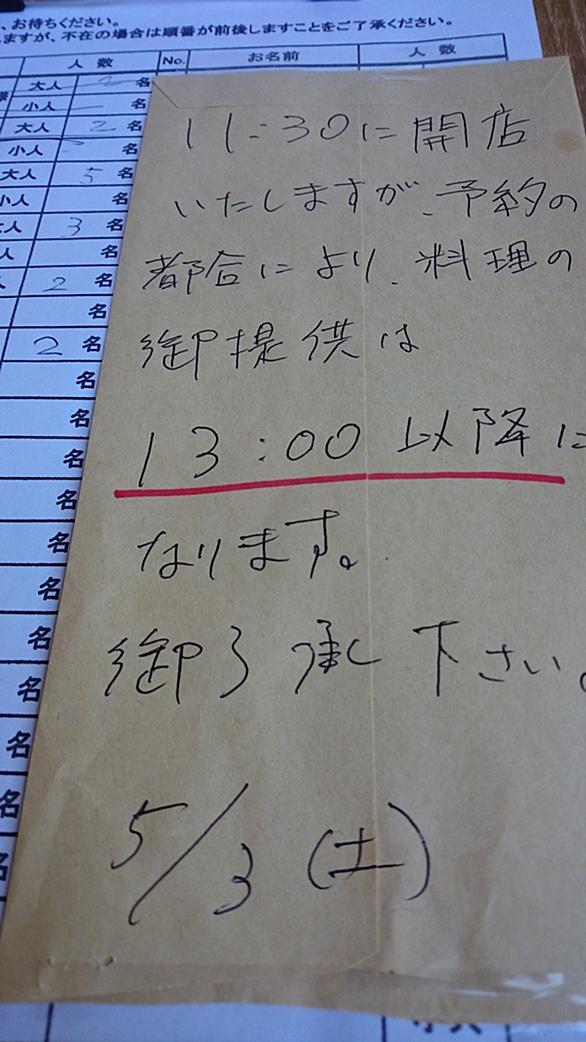 、お待ちください。
ますが、不在の場合は順番が前後しますことをご了承ください。
人 数 No. お名前 人 数
大人 2 名
小人 名
大人 2 名
小人 名
大人 5 名
小人
大人 3 名
名
2 名
名
2 名
名
名
名
名
名
名
名
名
名
名
11:30に開店
いたしますが、予約の
都合により、料理の
御提供は
13:00 以降に
なります。
御了承下さい。
5/3 (土)